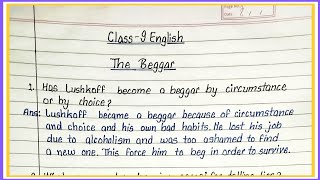 Class-9 English
The Beggar
1. Has Lushkoff become a beggar by circumstance
or by choice?
Ans: Lushkoff became a beggar because of circumstance
and choice and his own bad habits. He lost his job
due to alcoholism and was too ashamed to find
a new one. This force him to beg in order to survive.